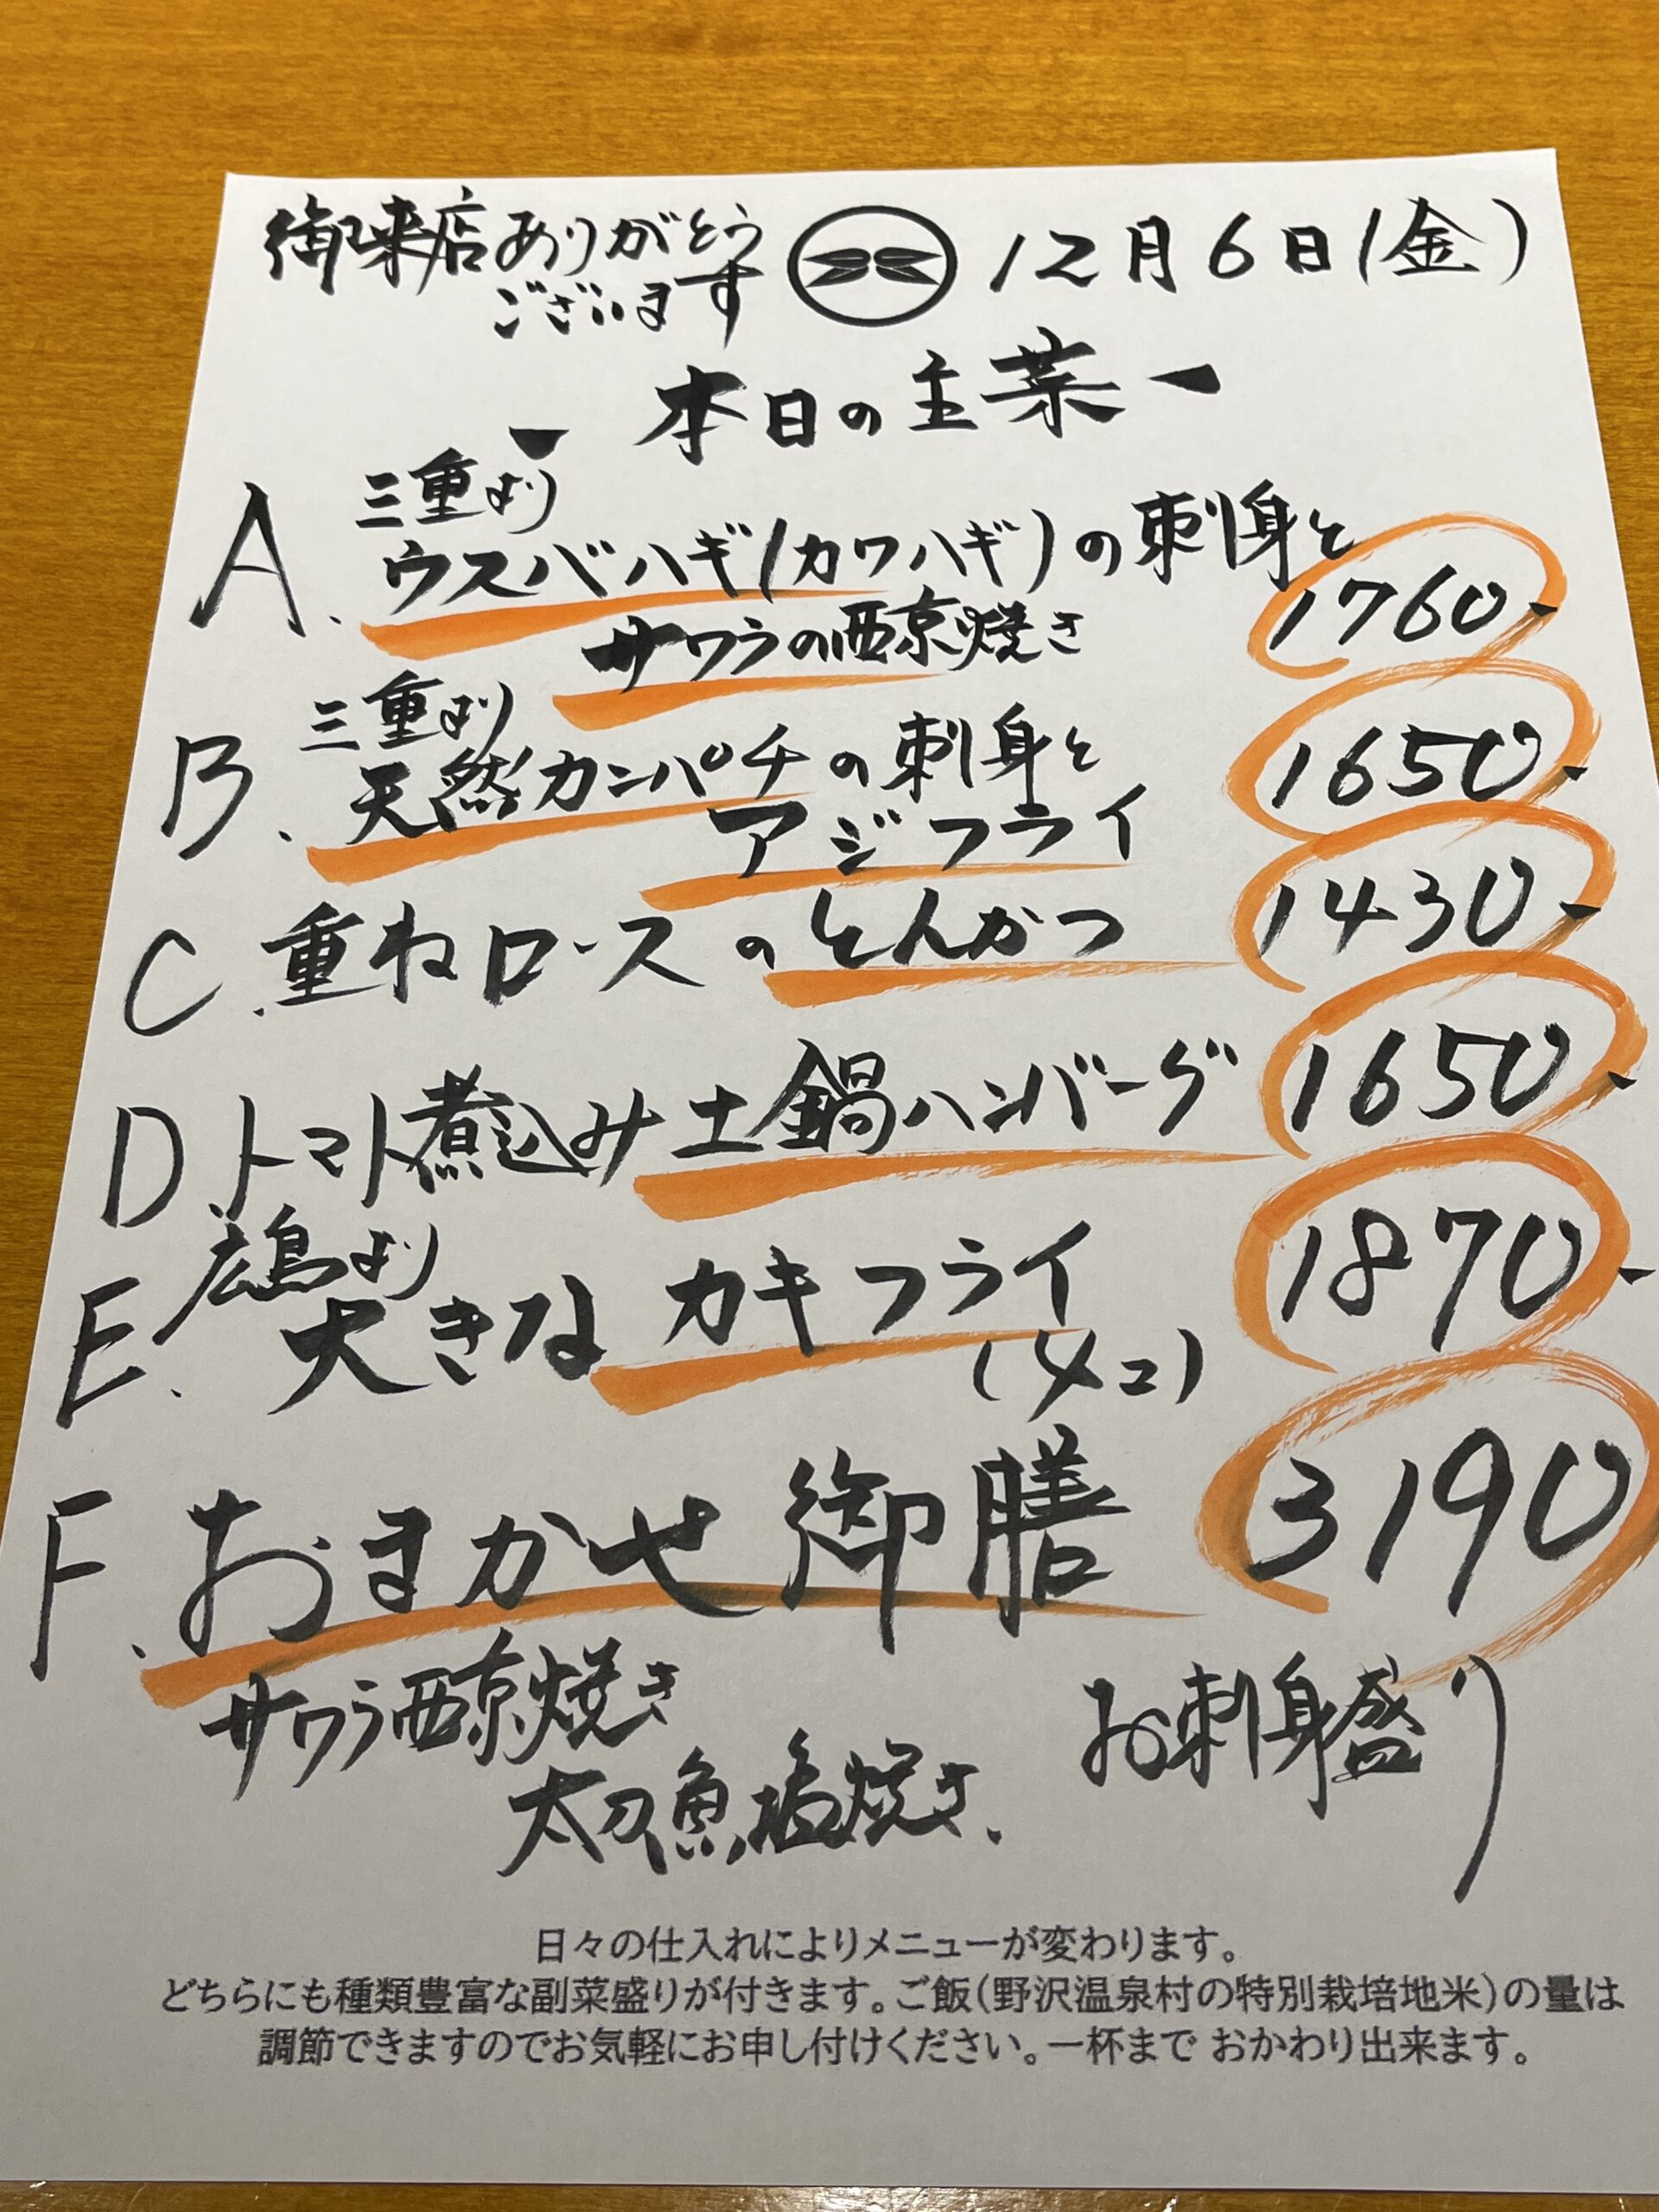 御来店ありがとう
ございます
12月6日(金)
ー 本日の主菜 ー
A. 三重より
ウスバハギ(カワハギ)の刺身と
サワラの西京焼き
1760-
B. 三重より
天然カンパチの刺身と
アジフライ
1650-
C. 重ねロースのとんかつ
1430-
D. トマト煮込み土鍋ハンバーグ
1650-
E. 広島より
大きなカキフライ
(4コ)
1870-
F. おまかせ御膳
3190
サワラ西京焼き
太刀魚塩焼き、
お刺身盛り
日々の仕入れによりメニューが変わります。
どちらにも種類豊富な副菜盛りが付きます。ご飯(野沢温泉村の特別栽培地米)の量は
調節できますのでお気軽にお申し付けください。一杯まで おかわり出来ます。